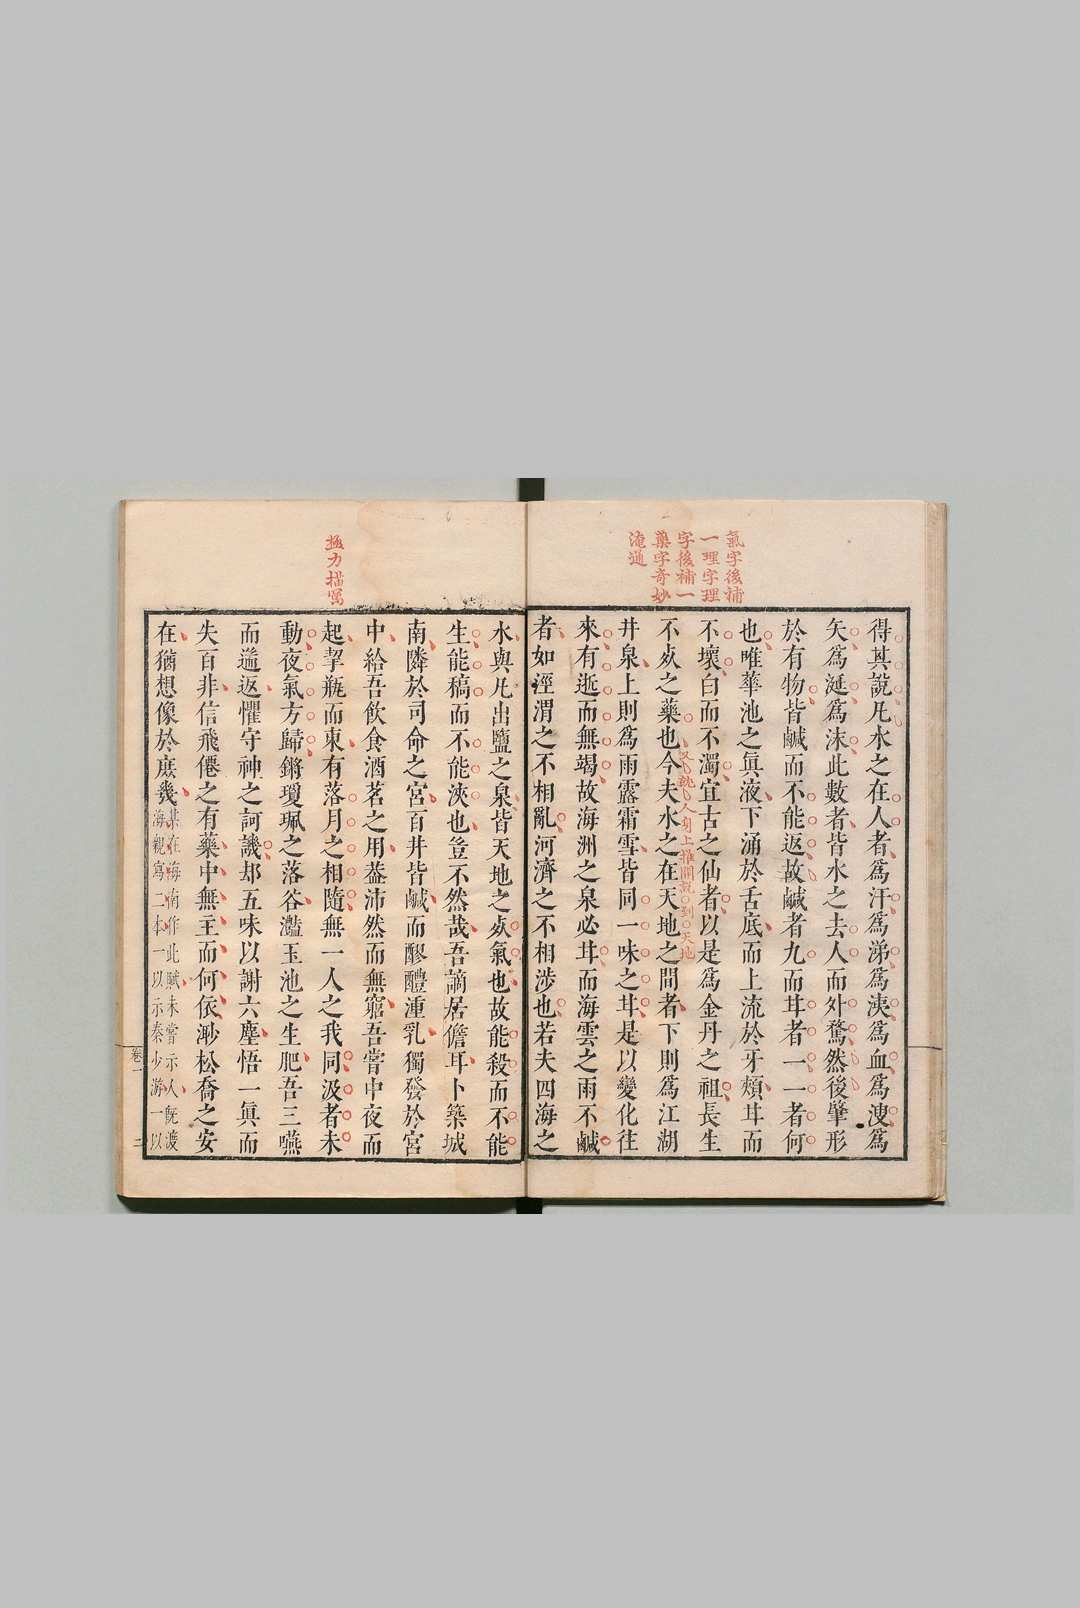 氣字後補
一理字理
字後補一
藥字奇妙
淹通
得其說凡水之在人者爲汗爲涕爲洟爲血爲溲爲
矢爲涎爲沫此數者皆水之去人而外騖然後肇形
於有物皆鹹而不能返故鹹者九而甘者一一者何
也唯華池之眞液下涌於舌底而上流於牙頰甘而
不壞白而不濁宜古之仙者以是爲金丹之祖長生
不死之藥也今夫水之在天地之間者下則爲江湖
井泉上則爲雨露霜雪皆同一味之甘是以變化往
來有逝而無竭故海洲之泉必甘而海雲之雨不鹹
者如涇渭之不相亂河濟之不相涉也若夫四海之
極力描寫
水與凡出鹽之泉皆天地之死氣也故能殺而不能
生能槁而不能浹也豈不然哉吾謫居儋耳卜築城
南隣於司命之宮百井皆鹹而醪醴湩乳獨發於宮
中給吾飲食酒茗之用葢沛然而無窮吾嘗中夜而
起挈瓶而東有落月之相隨無一人之我同汲者未
動夜氣方歸鏘瓊珮之落谷灩玉池之生肥吾三嚥
而遄返懼守神之訶譏却五味以謝六塵悟一眞而
失百非信飛僊之有藥中無主而何依渺松喬之安
在猶想像於庶幾某在海南作此賦未嘗示人旣渡
海親寫二本一以示秦少游一以
卷一
二